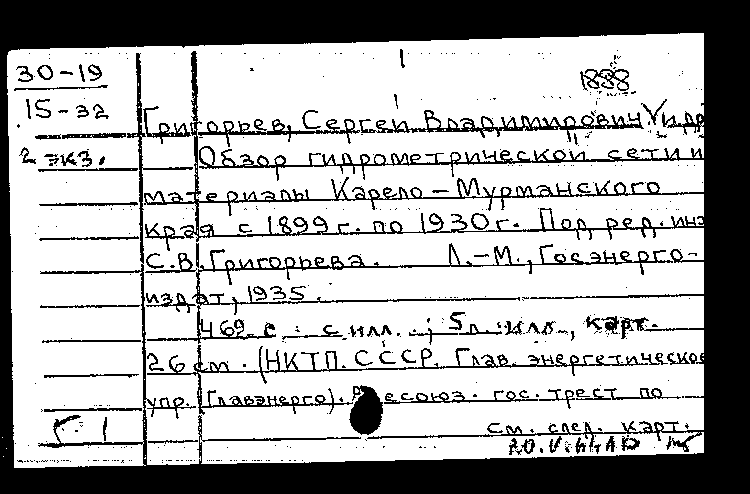 30-19
1898
15-32
Григорьев, Сергей Владимирович
2 экз.
Обзор гидрометрической сети и
материалы Карело-Мурманского
края с 1899 г. по 1930 г. Под ред. инж
С.В. Григорьева. Л.-М., Госэнерго-
издат, 1935.
469 с. с илл.; 5 л. илл., карт.
26 см. (НКТП. СССР. Глав. энергетическое
упр. (Главэнерго). Всесоюз. гос. трест по
5 1
см. след. карт.